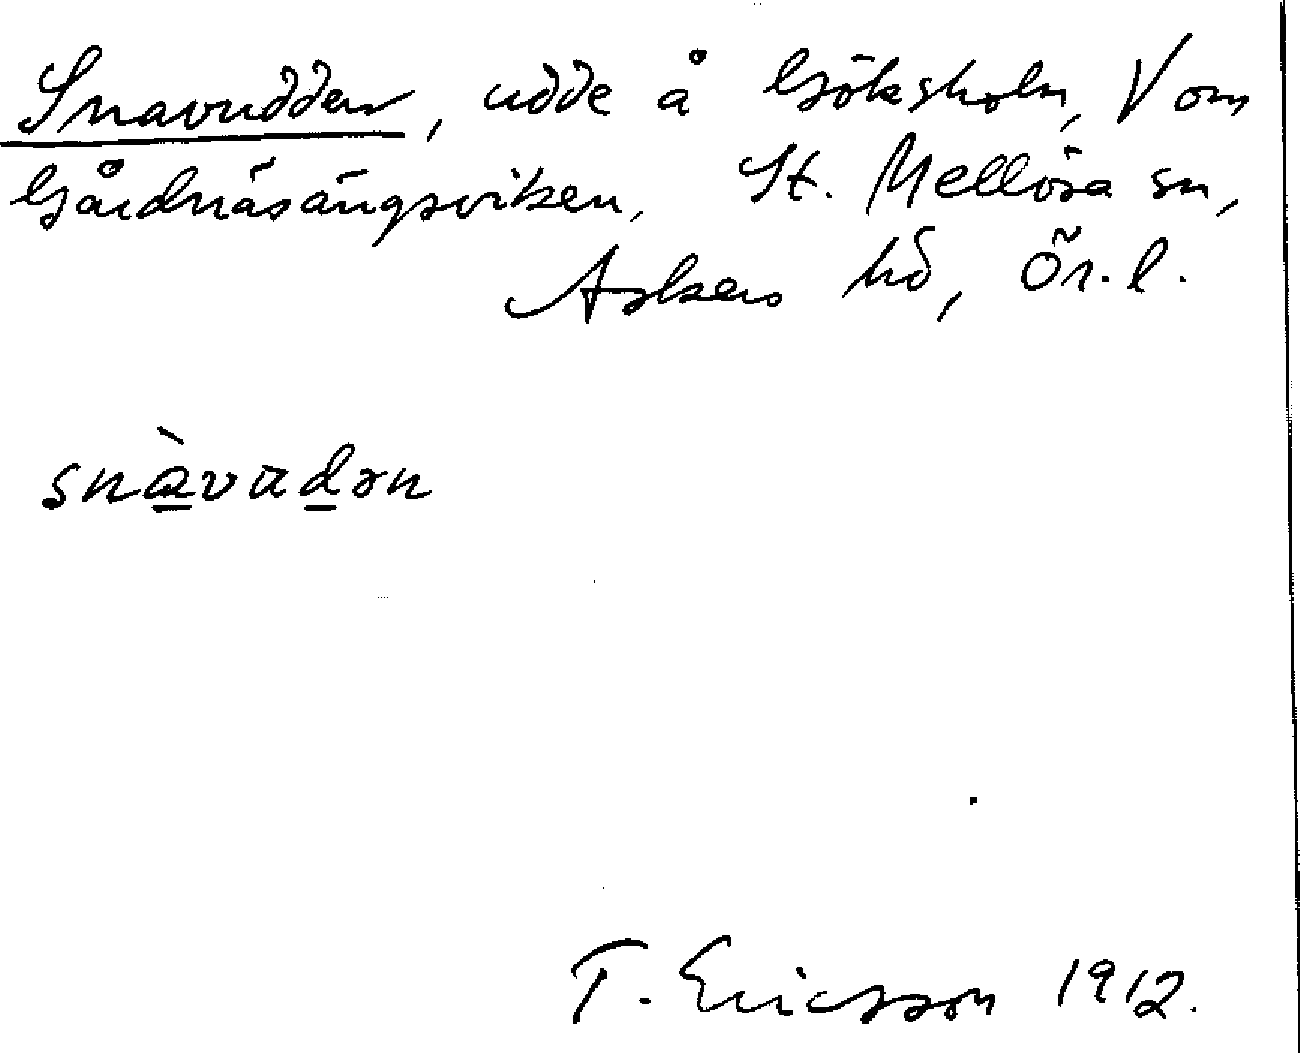 Snavudden, udde å Göksholm, V om
Gårdnäsängsviken, St. Mellösa sn,
Askers hd, Ör. l.
snàvudən
T. Ericsson 1912.